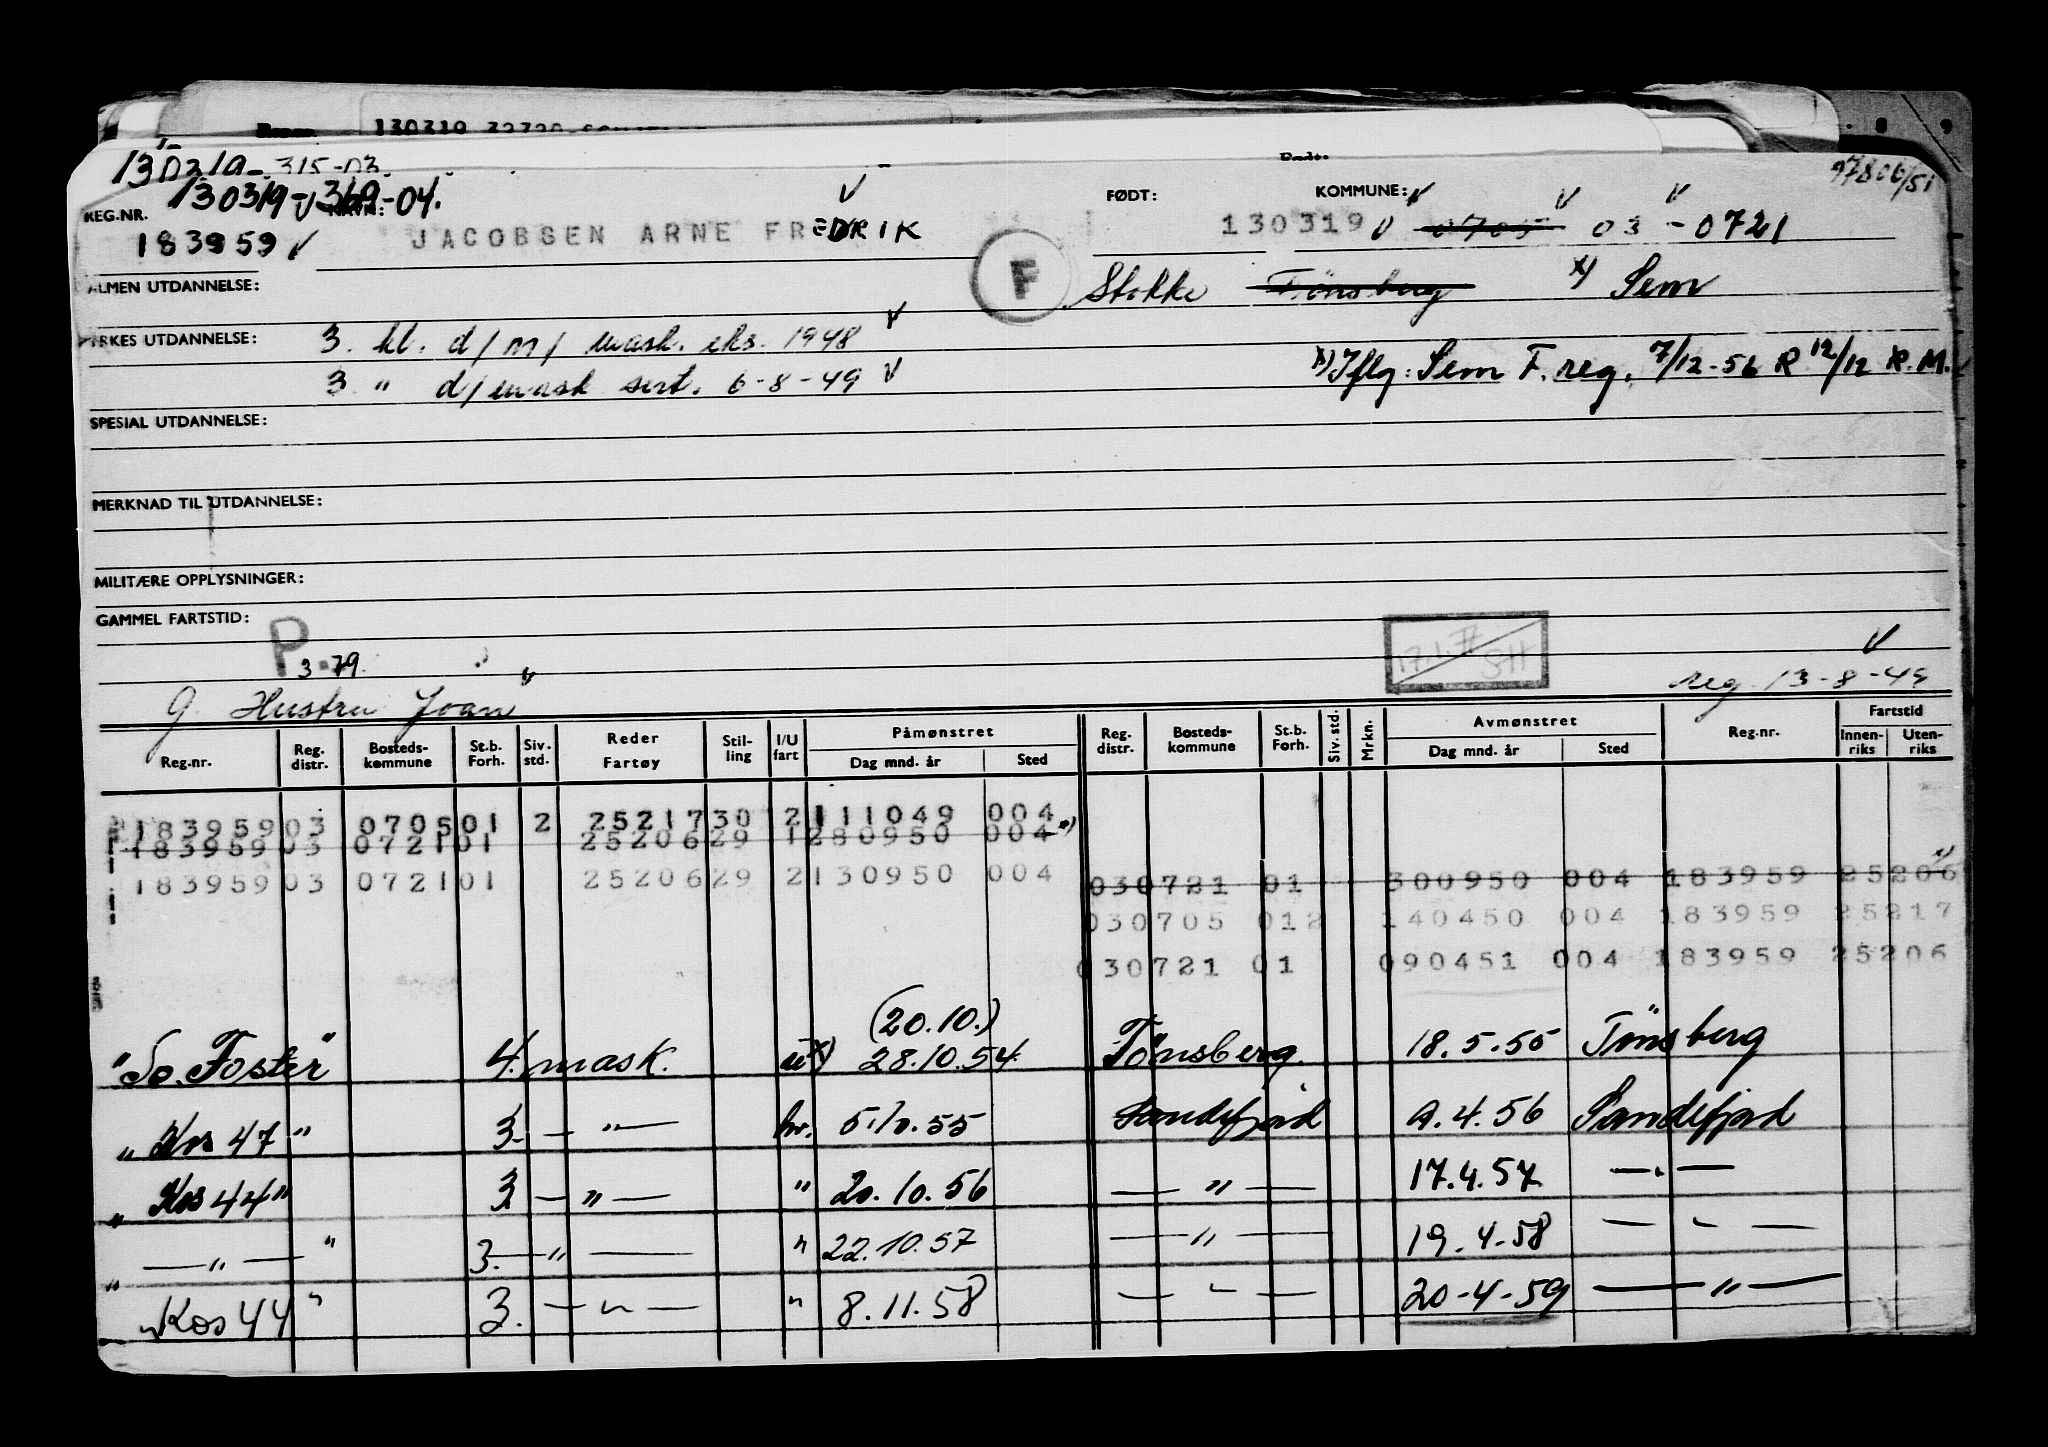 130319-315-03.
130319-369-04.
97806/51
REG.NR. NAVN: FØDT: KOMMUNE:
183959 JACOBSEN ARNE FREDRIK 130319 0705 03 - 0721
F
ALMEN UTDANNELSE: Stokke Tönsberg x) Sem
YRKES UTDANNELSE: 3. kl. d/m/ mask. eks. 1948
x) Iflg: Sem F.reg. 7/12-56 R 12/12 R.M.
3 " d/mask sert. 6-8-49
SPESIAL UTDANNELSE:
MERKNAD TIL UTDANNELSE:
MILITÆRE OPPLYSNINGER:
GAMMEL FARTSTID:
P.
3-79.
17.1.77 SH
reg. 13-8-49
g. Hustru Joan
Reg.nr. Reg. distr. Bosteds-kommune St.b. Forh. Siv. std. Reder Fartøy Stil-ling I/U fart Påmønstret Dag mnd. år Sted Reg. distr. Bosteds-kommune St.b. Forh. Siv. std. Mrkn. Avmønstret Dag mnd. år Sted Reg.nr. Fartstid Innen-riks Uten-riks
183959 03 0705 01 2 25217 30 2 111049 004
183959 03 0721 01 25206 29 1 280950 004 x)
183959 03 0721 01 25206 29 2 130950 004
03 0721 01 300950 004 183959 25206
03 0705 01 2 140450 004 183959 25217
03 0721 01 090451 004 183959 25206
(20.10.)
"So. Foster" 4. mask. u x) 28.10.54 Tönsberg. 18.5.55 Tönsberg
"Kos 47" 3. — " — hv. 5.10.55 Sandefjord 9.4.56 Sandefjord
"Kos 44" 3. — " — " 20.10.56 — " — 17.4.57 — " —
" — " — " 3. — " — " 22.10.57 — " — 19.4.58 — " —
"Kos 44" 3. — " — " 8.11.58 — " — 20-4-59 — " —